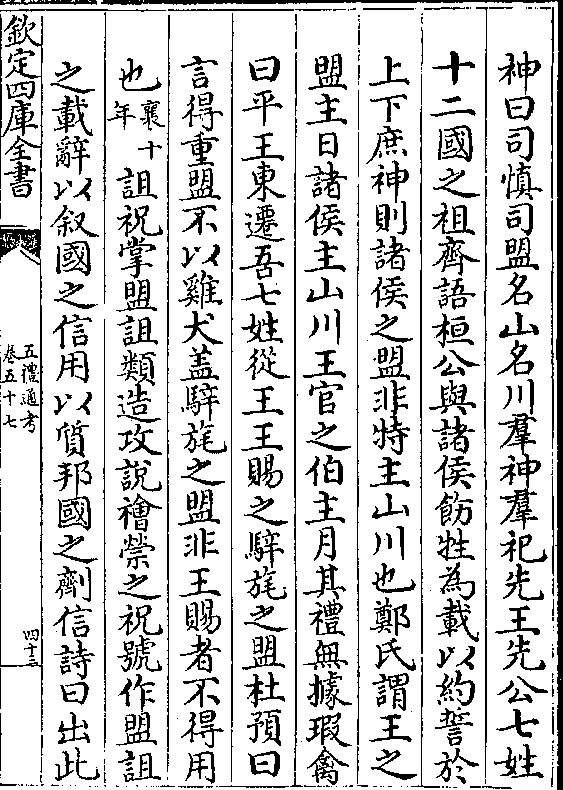 神曰司慎司盟名山名川羣神羣祀先王先公七姓
十二國之祖齊語桓公與諸侯飭牲為載以約誓於
上下庶神則諸侯之盟非特主山川也鄭氏謂王之
盟主日諸侯主山川王官之伯主月其禮無據瑕禽
曰平王東遷吾七姓從王王賜之騂旄之盟杜預曰
言得重盟不以雞犬盖騂旄之盟非王賜者不得用
也襄十年詛祝掌盟詛類造攻說禬禜之祝號作盟詛
之載辭以叙國之信用以質邦國之劑信詩曰出此
欽定四庫全書
五禮通考
卷五十七
四十三